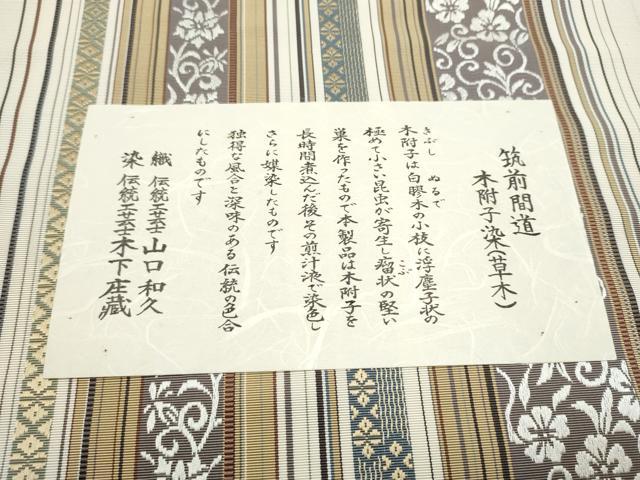 筑前間道
木附子染(草木)
きぶし ぬるで
木附子は白膠木の小枝に浮塵子状の
極めて小さい昆虫が寄生し瘤状の堅い
こぶ
巣を作ったもので本製品は木附子を
長時間煮込んだ後その煎汁液で染色し
さらに媒染したものです
独得な風合と深味のある伝統の色合
にしたものです
織 伝統工芸士 山口和久
染 伝統工芸士 木下庄蔵